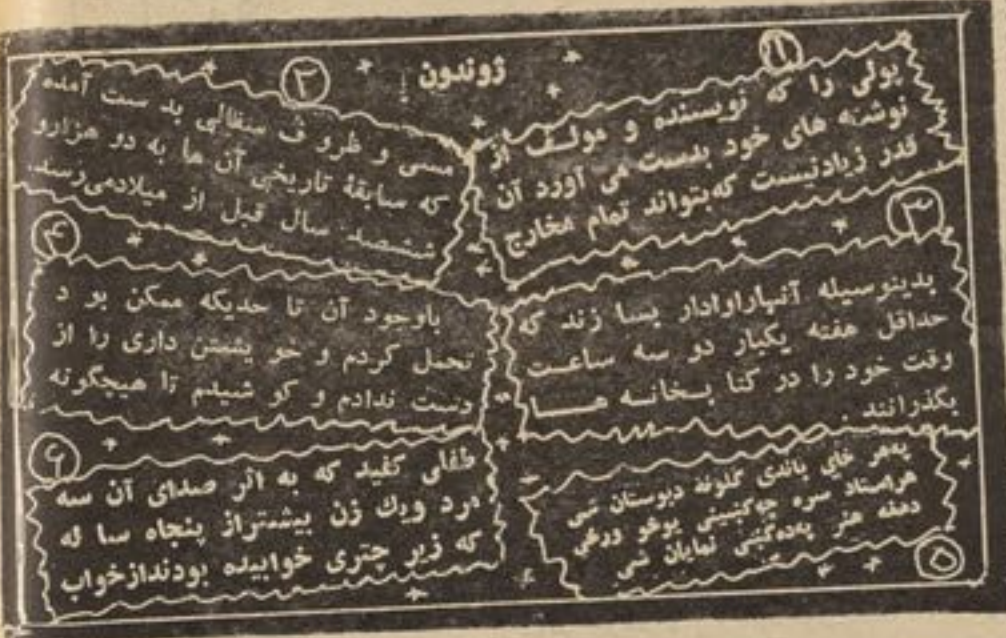 ژوندون
۱
پولی را که نویسنده و مولف از
نوشته های خود بدست می آورد آن
قدر زیادنیست که بتواند تمام مخارج
۲
مسی و ظرو ف سفالی بد ست آمده
که سابقهٔ تاریخی آن ها به دو هزارو
ششصد سال قبل از میلادمی‌رسد.
۳
بدینوسیله آنهاراوادار بسا زند که
حداقل هفته یکبار دو سه ساعت
وقت خود را در کتا بخانه هــا
بگذرانند .
۴
باوجود آن تا حدیکه ممکن بو د
تحمل کردم و خو یشتن داری را از
دست ندادم و کو شیدم تا هیچگونه
۵
پهر خای باندی گلونه دبوستان شی
هراستاد سره چه کښینی یوغو ورځی
دهغه هنر پده کښی نمایان شی
۶
طفلی کفید که به اثر صدای آن سه
مرد ویك زن بیشتراز پنجاه سا له
که زیر چتری خوابیده بودندازخواب